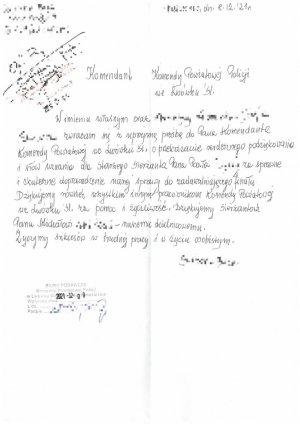 dn. 8.12.21r
Komendant Komendy Powiatowej Policji
we Lwówku Śl.
W imieniu własnym oraz
zwracam się z uprzejmą prośbą do Pana Komendanta
Komendy Powiatowej we Lwówku Śl. o przekazanie serdecznego podziękowania
i słów uznania dla Starszego Sierżanta Pana Pawła za sprawne
i skuteczne doprowadzenie naszej sprawy do zadawalniającego finału
Dziękujemy również wszystkim innym pracownikom Komendy Powiatowej
we Lwówku Śl. za pomoc i życzliwość. Dziękujemy Sierżantowi
Panu Michałowi - naszemu dzielnicowemu.
Życzymy sukcesów w trudnej pracy i w życiu osobistym.
BIURO PODAWCZE
Komendy Powiatowej Policji